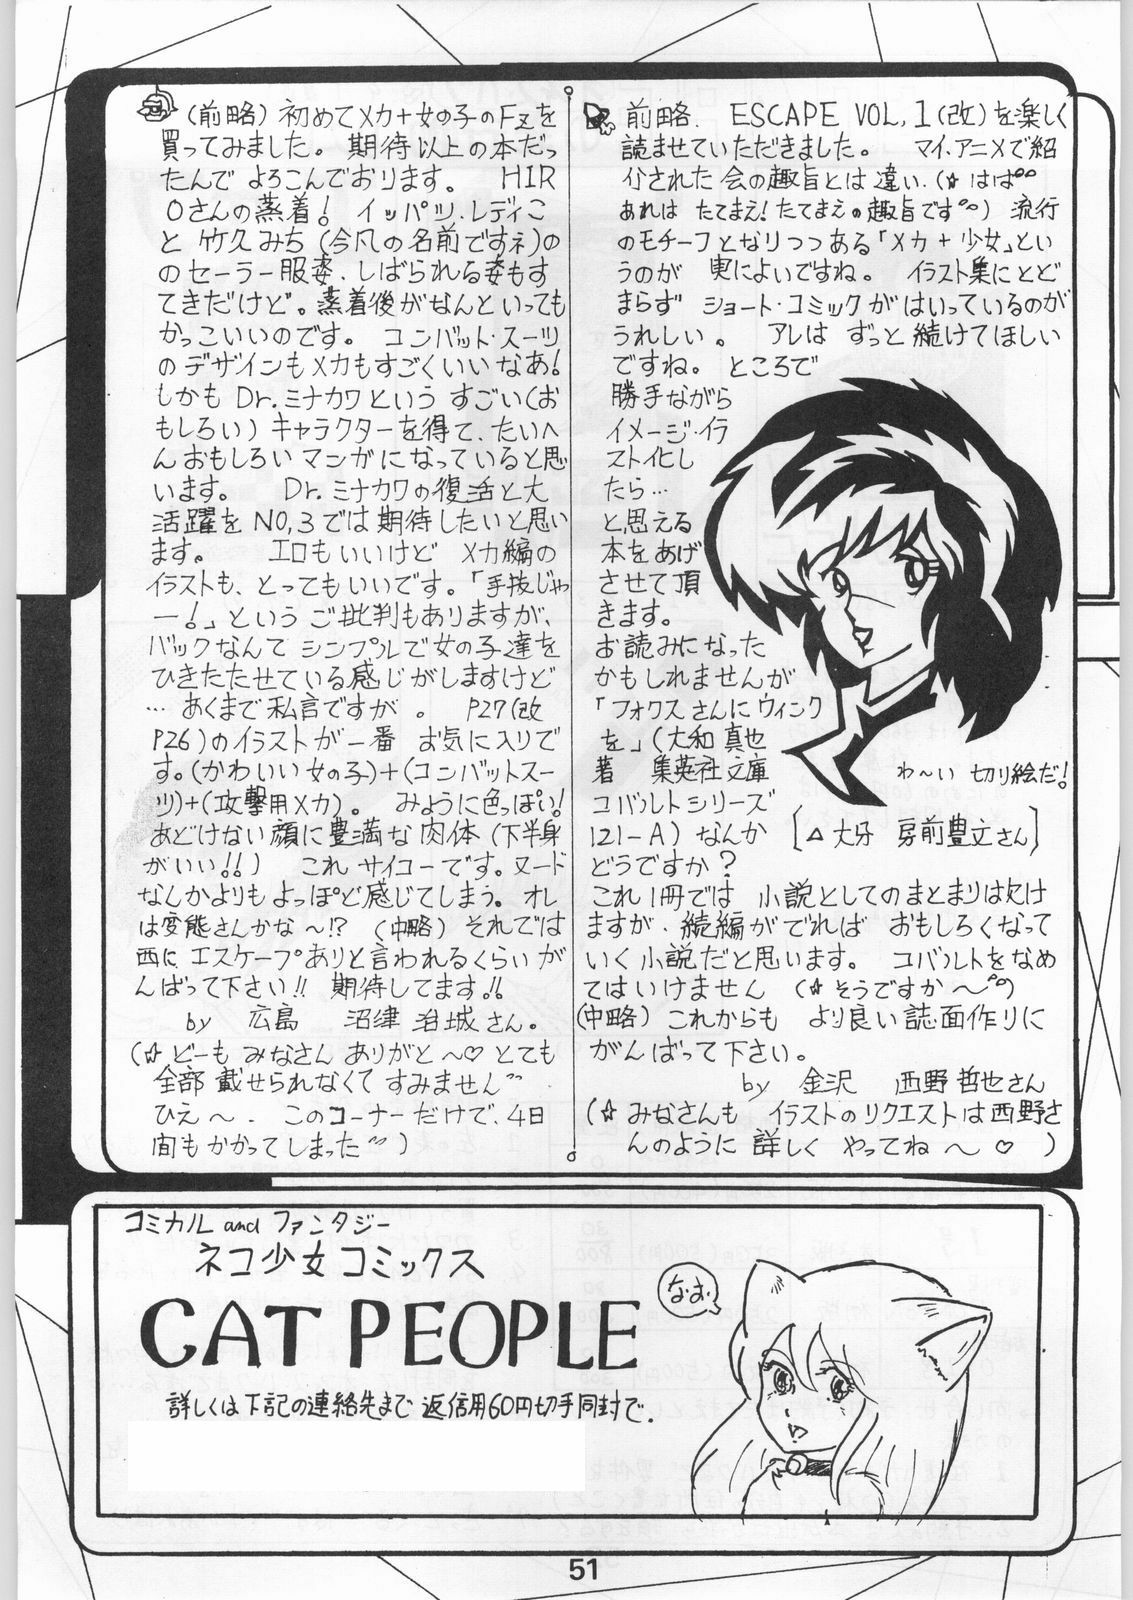 (前略) 初めてメカ+女の子のF文を
買ってみました。期待以上の本だっ
たんで よろこんでおります。 HIR
Oさんの蒸着! イッパツ・レディこ
と 竹久みち (今凡の名前ですネ)の
のセーラー服姿、しばられる姿もす
てきだけど。蒸着後がなんといっても
かっこいいのです。 コンバット・スーツ
のデザインもメカもすごくいいなあ!
しかも Dr.ミナカワという すごい(お
もしろい) キャラクターを得て、たいへ
んおもしろいマンガになっていると思
います。 Dr.ミナカワの復活と大
活躍を NO,3では期待したいと思い
ます。 エロもいいけど メカ編の
イラストも、とってもいいです。「手抜じゃ
ー!」という ご批判もありますが、
バックなんて シンプルで女の子達を
ひきたたせている感じがしますけど
… あくまで私言ですが 。 P27(改
P26)のイラストが一番 お気に入りで
す。(かわいい女の子)+(コンバットスー
ツ)+(攻撃用メカ)。 みょうに色っぽい!
あどけない顔に豊満な肉体 (下半身
がいい!!) これ サイコーです。ヌード
なんかよりも よっぽど感じてしまう。オレ
は変態さんかな〜!? (中略) それでは
西に エスケープありと言われるくらい が
んばって下さい!! 期待してます!!
by 広島 沼津 治城さん。
(☆ どーも みなさん ありがと〜♡ とても
全部 載せられなくて すみません
ひえ〜. このコーナーだけで、4日
間もかかってしまった )
前略. ESCAPE VOL,1(改)を楽しく
読ませていただきました。 マイ・アニメで紹
介された 会の趣旨とは違い.(☆ はは°°
あれは たてまえ!たてまえの趣旨です°°) 流行
のモチーフとなりつつある「メカ+少女」とい
うのが 実によいですね。 イラスト集にとど
まらず ショート・コミックがはいっているのが
うれしい。 アレは ずっと続けてほしい
ですね。 ところで
勝手ながら
イメージ・イラ
スト化し
たら…
と思える
本をあげ
させて頂
きます。
お読みになった
かもしれませんが
「フォクスさんにウィンク
を」(大和真也
著 集英社文庫
コバルトシリーズ
121-A) なんか
どうですか?
わ〜い 切り絵だ!
[△大牙 房前豊文さん]
これ1冊では 小説としてのまとまりは欠け
ますが、続編がでれば おもしろくなって
いく小説だと思います。 コバルトをなめ
てはいけません (☆そうですか〜°°)
(中略) これからも より良い誌面作りに
がんばって下さい。
by 金沢 西野哲也さん
(☆ みなさんも イラストのリクエストは西野さ
んのように 詳しく やってね〜 ♡ )
コミカル and ファンタジー
ネコ少女コミックス
CAT PEOPLE
なお!
詳しくは下記の連絡先まで 返信用60円切手同封で.
51